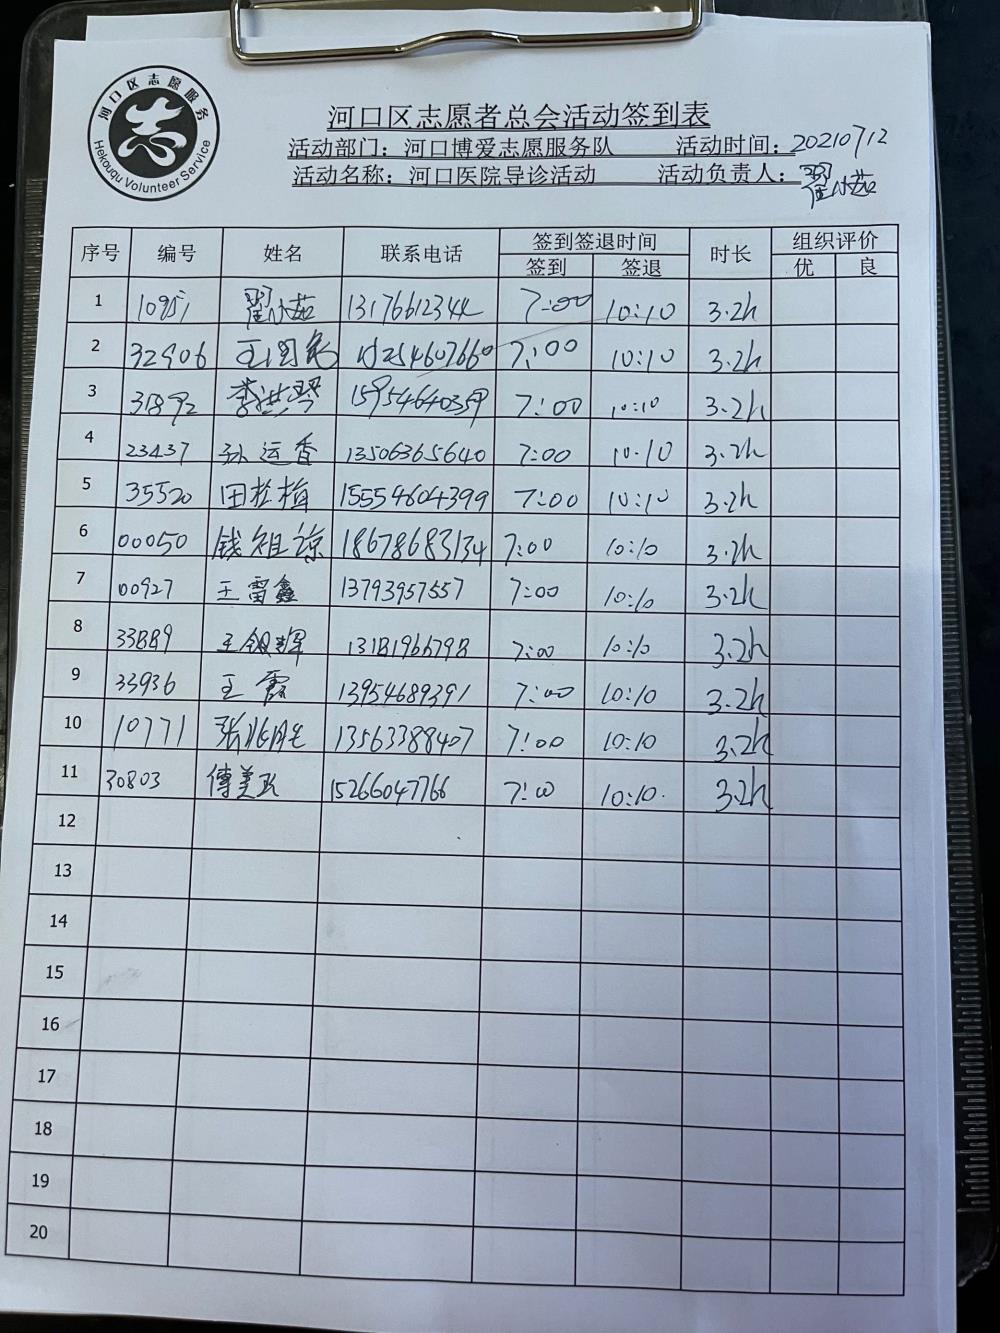 河口区志愿服务
Hekouqu Volunteer Service
志
河口区志愿者总会活动签到表
活动部门：河口博爱志愿服务队 活动时间：20210712
活动名称：河口医院导诊活动 活动负责人：翟小茹
序号 编号 姓名 联系电话 签到签退时间 时长 组织评价
签到 签退 优 良
1 翟小茹 13176612344 7:00 10:10 3.2h
2 32906 7:00 10:10 3.2h
3 31892 李洪琴 7:00 10:10 3.2h
4 23437 孙运香 13506365640 7:00 10:10 3.2h
5 35520 田桂梅 15554604399 7:00 10:10 3.2h
6 00050 钱祖凉 18678683134 7:00 10:10 3.2h
7 00927 王雷鑫 13793957557 7:00 10:10 3.2h
8 33889 王银辉 13181966798 7:00 10:10 3.2h
9 33936 王霞 13954689391 7:00 10:10 3.2h
10 10771 13563388407 7:00 10:10 3.2h
11 30803 傅美政 15266047766 7:00 10:10. 3.2h
12
13
14
15
16
17
18
19
20